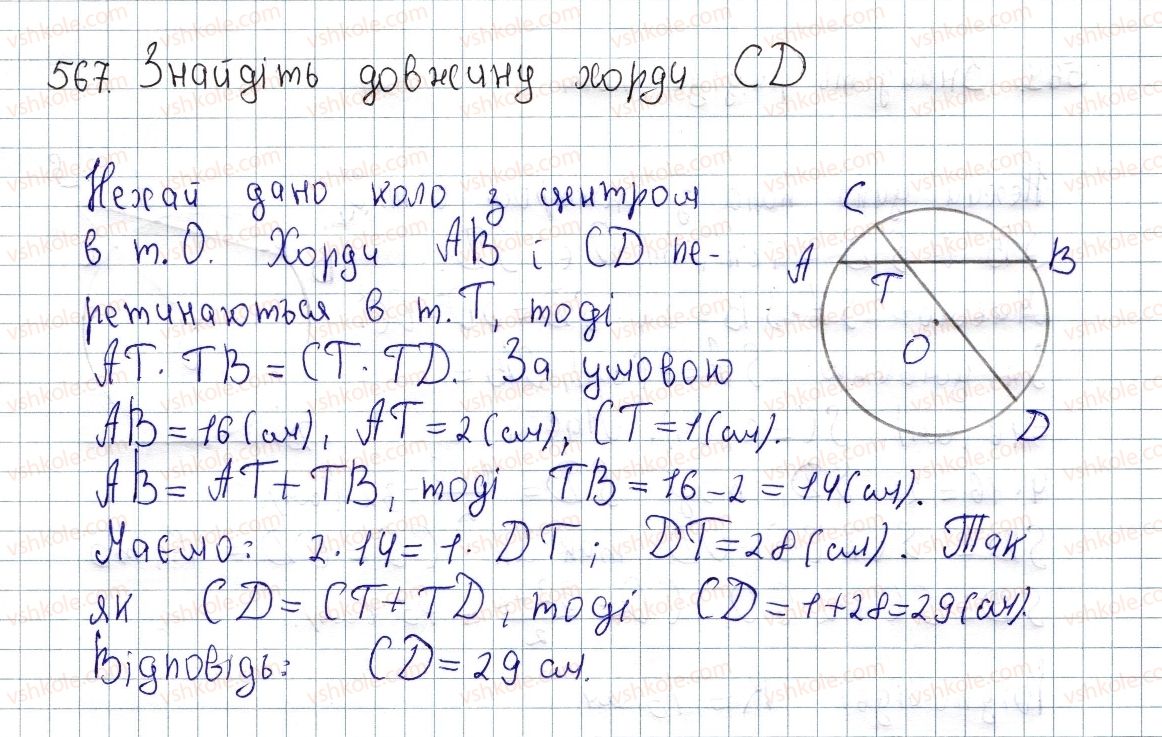 567. Знайдіть довжину хорди CD
Нехай дано коло з центром
в т. О. Хорди AB і CD пе-
ретинаються в т. T, тоді
AT · TB = CT · TD. За умовою
AB = 16 (см), AT = 2 (см), CT = 1 (см).
AB = AT + TB, тоді TB = 16 - 2 = 14 (см).
Маємо: 2 · 14 = 1 · DT; DT = 28 (см). Так
як CD = CT + TD, тоді CD = 1 + 28 = 29 (см).
Відповідь: CD = 29 см.
C
A
B
T
O
D
vshkole.com